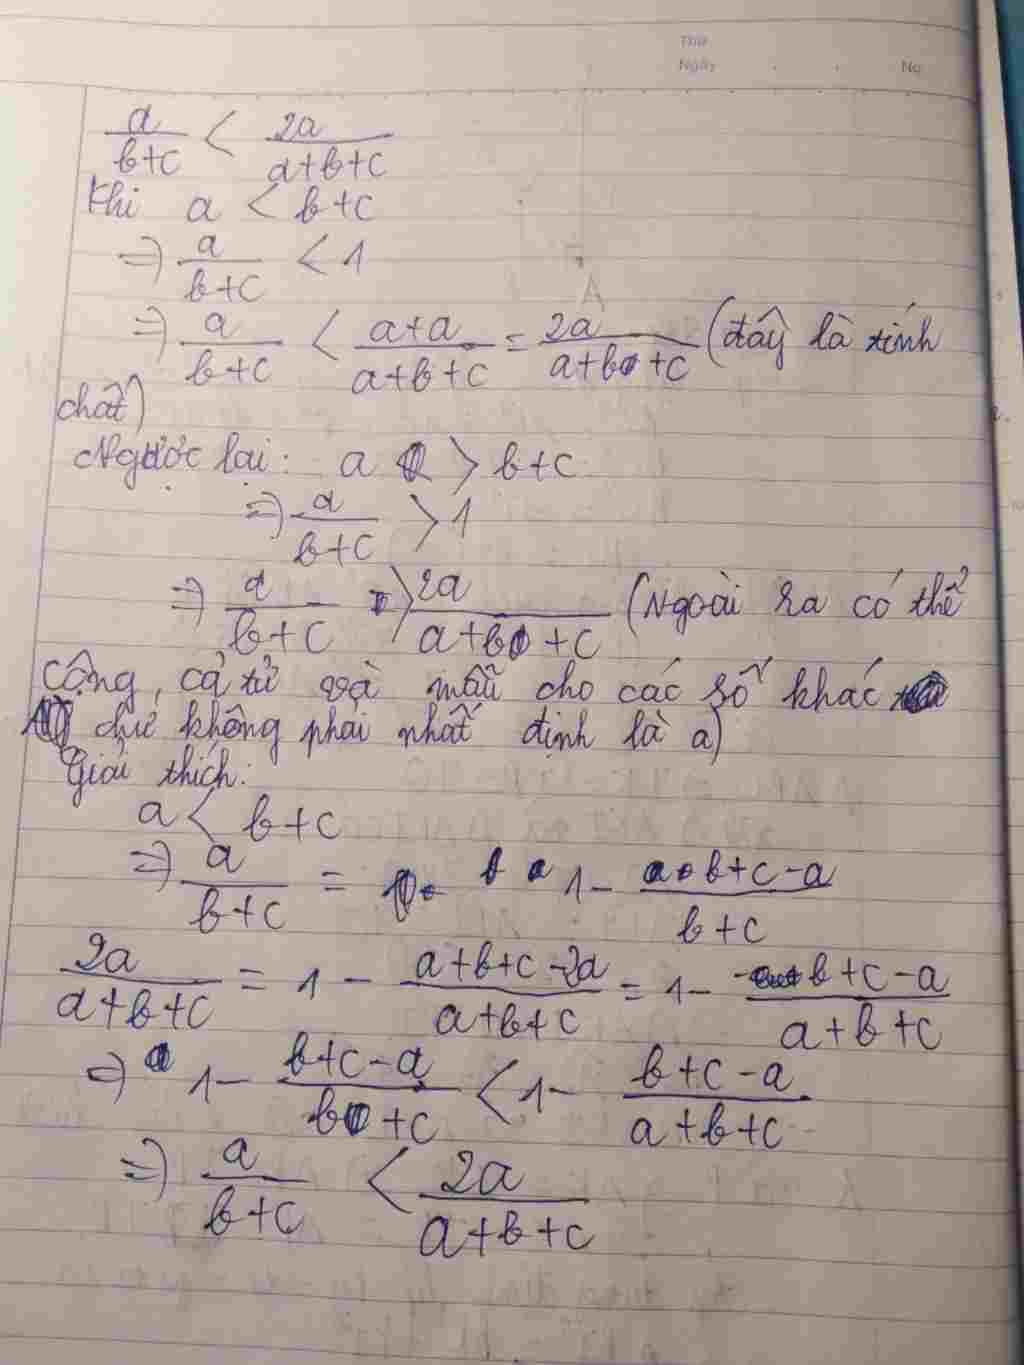 Thứ
Ngày No
a/(b+c) < 2a/(a+b+c)
Khi a < b+c
=> a/(b+c) < 1
=> a/(b+c) < (a+a)/(a+b+c) = 2a/(a+b+c) (đây là tính
chất)
Ngược lại: a > b+c
=> a/(b+c) > 1
=> a/(b+c) > 2a/(a+b+c) (Ngoài ra có thể
cộng cả tử và mẫu cho các số khác
chứ không phải nhất định là a)
Giải thích:
a < b+c
=> a/(b+c) = 1 - (b+c-a)/(b+c)
2a/(a+b+c) = 1 - (a+b+c-2a)/(a+b+c) = 1 - (b+c-a)/(a+b+c)
=> 1 - (b+c-a)/(b+c) < 1 - (b+c-a)/(a+b+c)
=> a/(b+c) < 2a/(a+b+c)